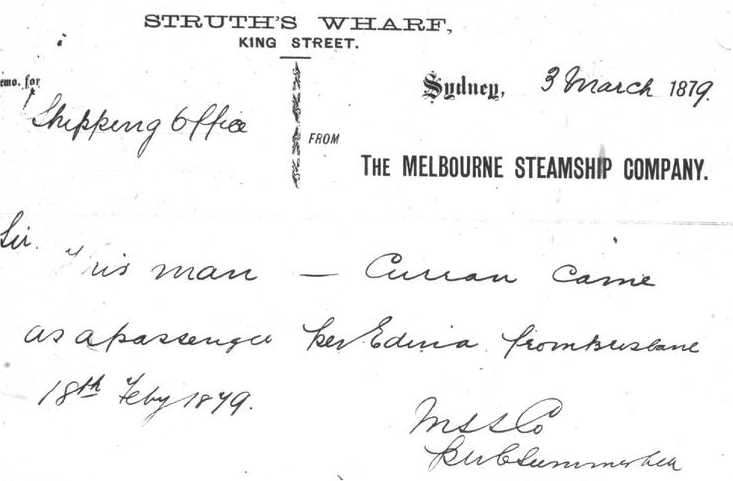 STRUTH'S WHARF,
KING STREET.
emo. for
Sydney, 3 March 1879.
Shipping Office
FROM
THE MELBOURNE STEAMSHIP COMPANY.
Sir.
This man — Curran came
as a passenger per Edina from Brisbane
18th Feby 1879.
MSSCo
per